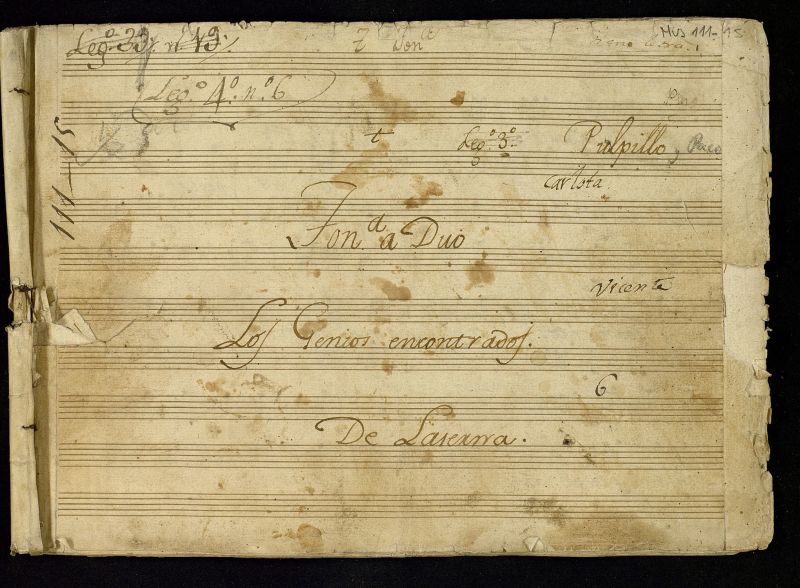 Leg.º 33. n. 19. 7 MUS 111-15
Leg.º 4º. n.º 6
111-15
t Leg.º 3º Pulpillo y
Carlota
Ton.ª a Duo
Vicenta
Los Genios encontrados.
6
De Laserna.